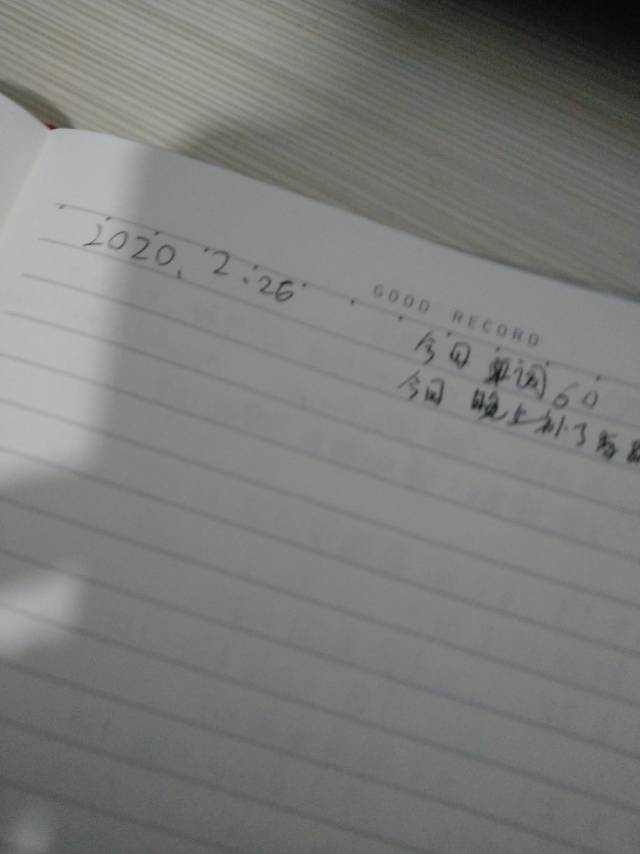 2020.2.26
GOOD RECORD
今日单词60
今日 晚上补了